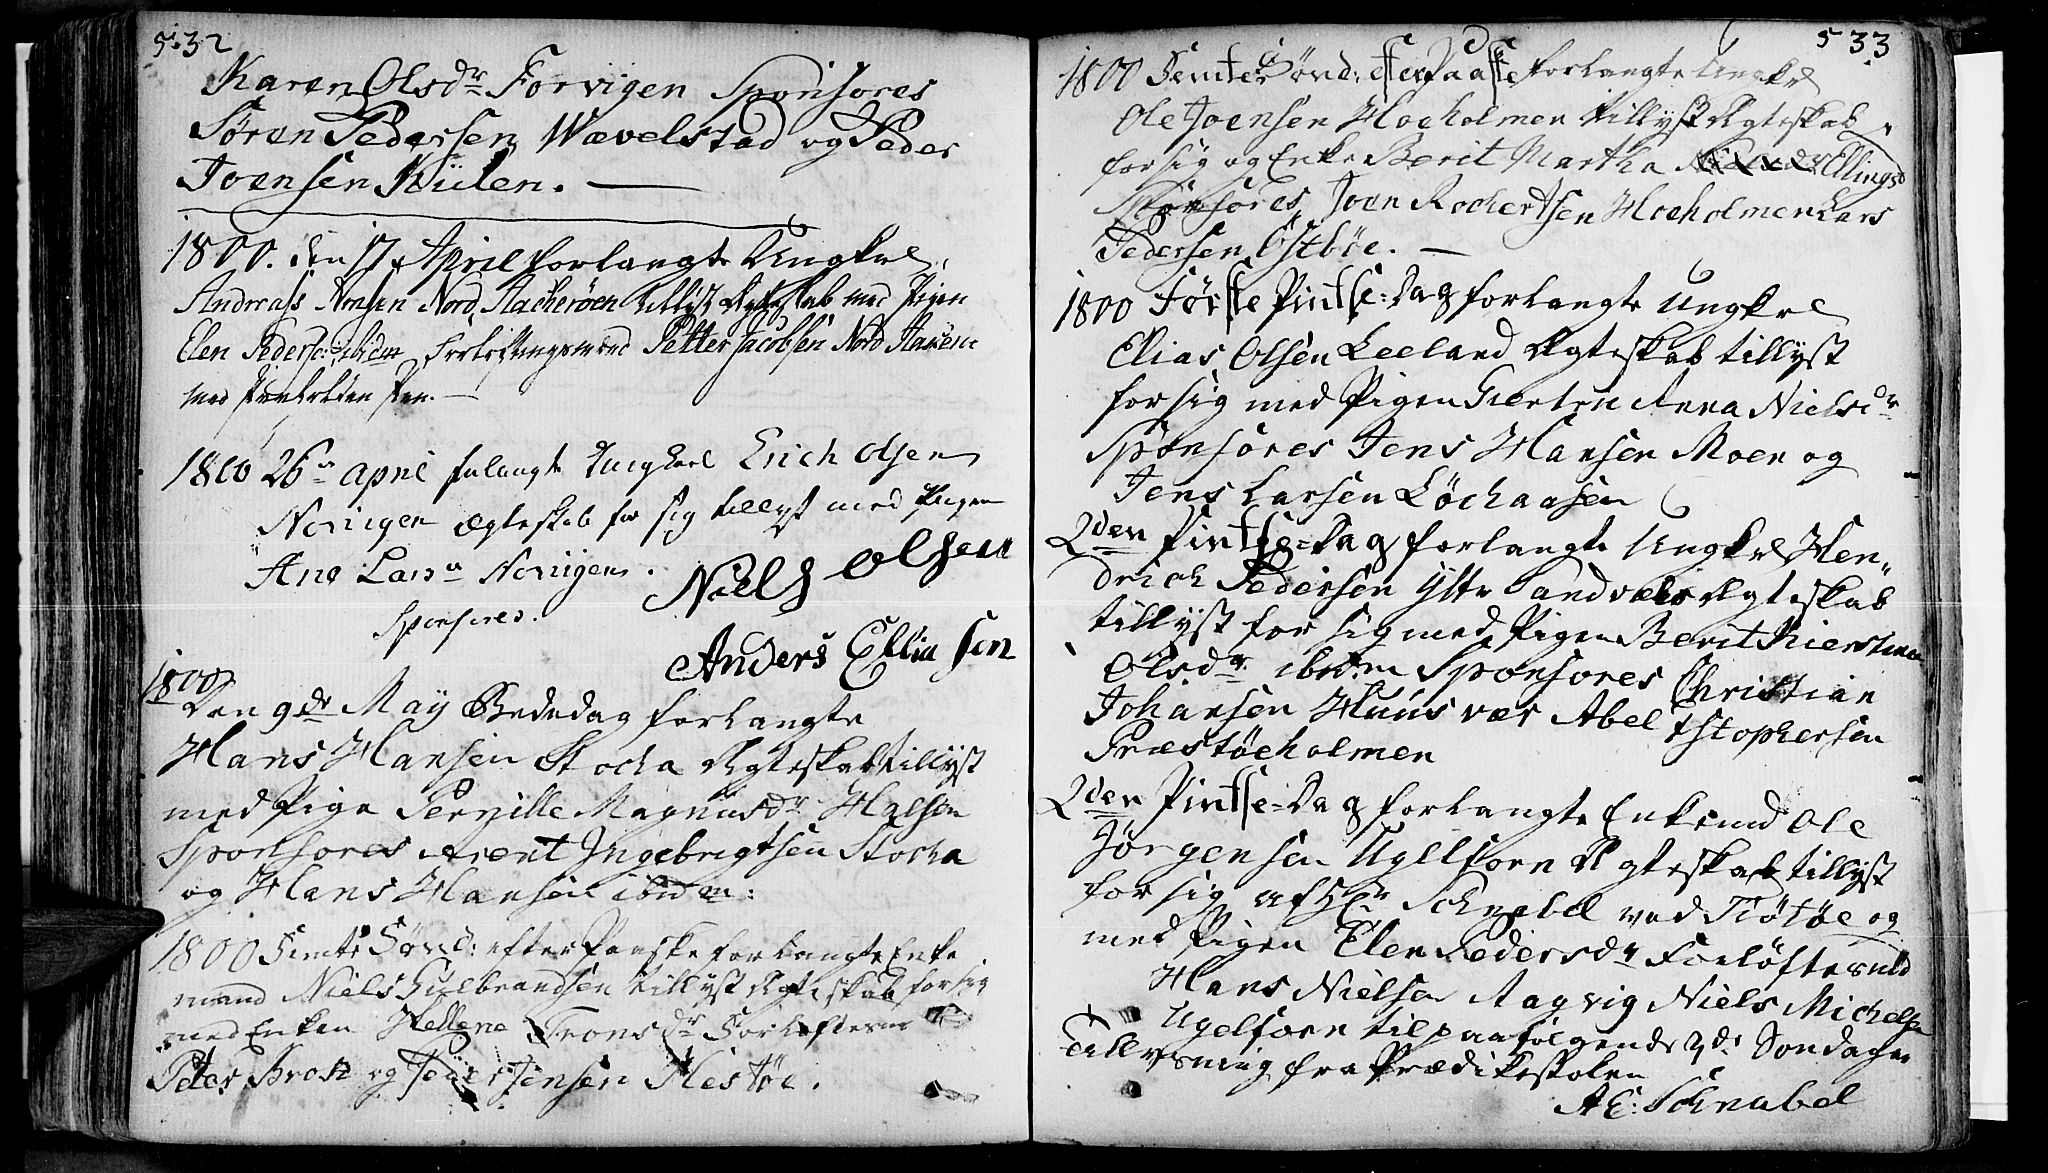 532
Karen Olsdr Forvigen Sponsores
Søren Pedersen Wævelstad og Peder
Joensen Kiilen.
1800. den 17 April forlangte Ungkrl
Andreas Nord tillist Ægteskab med Pigen
Elen Pedersd: ibidm Petter Jacobsen Nord
med
1800 26de april forlangte Ungkarl Erich Olsen
Norvigen ægteskab for sig tillyst med Pigen
Ane Larsdr Norvigen.
Sponsores.
Niels Olsen
Anders Elliasen
1800
Den 9de May Bededag forlangte
Hans Hansen Stocka Ægteskab tillyst
med Pige Pernille Magnusdr Halsen
Sponsores Arent Ingebrigtsen Stocka
og Hans Hansen ibidem:
1800 Femte Sønd: efter Paaske forlangte Enke
mand Niels Gulbrandsen tillyst Ægteskab for sig
med Enken Hellene Tronsdr Forløfterne
Peter Brok og Peder Jensen Flestøe.
533
1800 Femte Sønd: efter Paaske forlangte Ungkrl
Ole Joensen Hoeholmen tillyst Ægteskab
for sig og Enke Berit Martha Ellingsd
Sponsores Joen Rochertsen Hoeholmen Lars
Pedersen Østbøe.
1800 Første Pintse=Dag forlangte Ungkrl
Elias Olsen Leeland Ægteskab tillyst
for sig med Pigen Gierten Anna Nielsdr
Sponsores Jens Hansen Moen og
Jens Larsen Løchaasen
2den Pintse=Dag forlangte Ungkrl Hen=
drich Pedersen Ytre Sandvær Ægteskab
tillyst for sig med Pigen Berit Kierstina
Olsdr ibidm Sponsores Christian
Johansen Huusvær Abel Estophersen
Præstøeholmen
2den Pintse=Dag forlangte Enkemd Ole
Jørgensen Ugelforn Ægteskab tillyst
for sig af Hr Schnabel ved Tiøtøe og
med Pigen Elen Pedersdr Forløftesmd
Hans Nielsen Aagvig Niels Michelsen
Ugelforn til paafølgende 3de Søndager
Tillysning fra Prædikestolen
A E: Schnabel